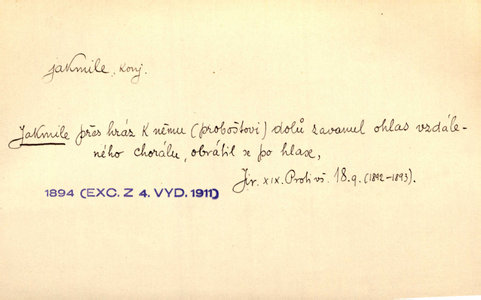 jakmile, konj.
Jakmile přes hráz k němu (proboštovi) dolů zavanul ohlas vzdále-
ného chorálu, obrátil se po hlase,
Jir. XIX. Proti vš. 18.9. (1892-1893).
1894 (EXC. Z 4. VYD. 1911)